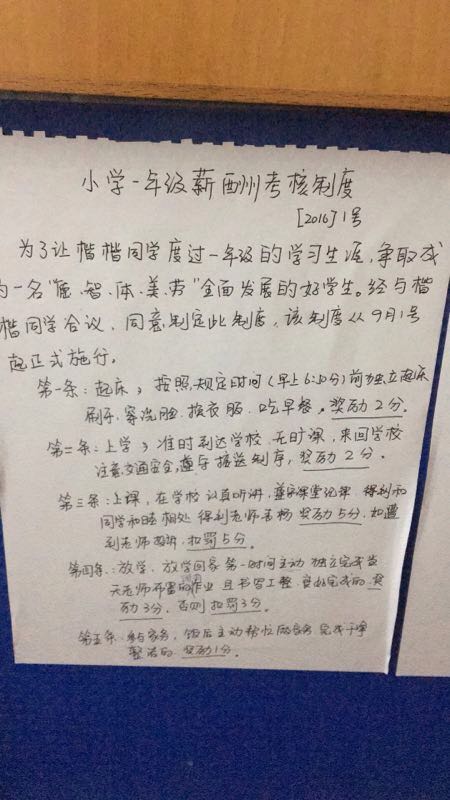 小学一年级薪酬州考核制度
[2016]1号
为了让楷楷同学度过一年级的学习生涯,争取成
为一名"德、智、体、美、劳"全面发展的好学生。经与楷
楷同学合议,同意制定此制度,该制度从9月1号
起正式施行。
第一条:起床,按照规定时间(早上6:20分)前独立起床
刷牙、洗脸、换衣服、吃早餐,奖励2分。
第二条:上学,准时到达学校、无旷课,来回学校
注意交通安全,遵守接送制序,奖励2分。
第三条:上课,在学校认真听讲,遵守课堂纪律、得利和
同学和睦相处 得到老师表扬 奖励5分,如遭
到老师 扣罚5分。
第四条:放学,放学回家第一时间主动独立完成当
天老师布置的作业 且书写工整 完成的,奖
励3分,否则扣罚3分。
第五条:参与家务,饭后主动帮忙 家务 完成干净
整洁的 奖励1分。